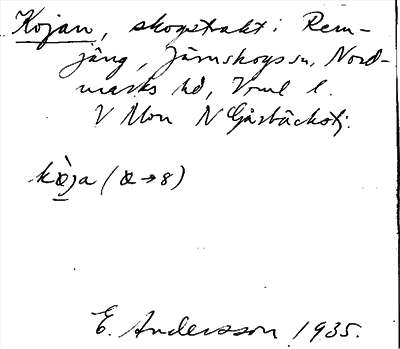 Kojan, skogstrakt i Rem-
jäng, Järnskogs sn, Nord-
marks hd, Vrml l.
V Mon N Gårbäckstj.
kò̱ja (ɞ → 8)
E. Andersson 1935.